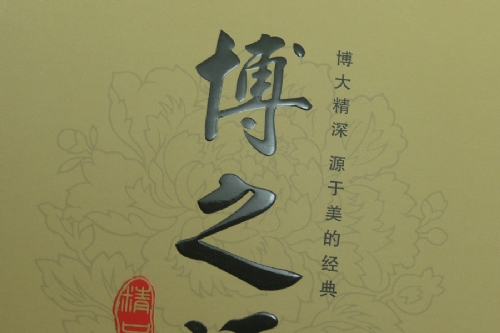 博之
博大精深 源于美的经典
精